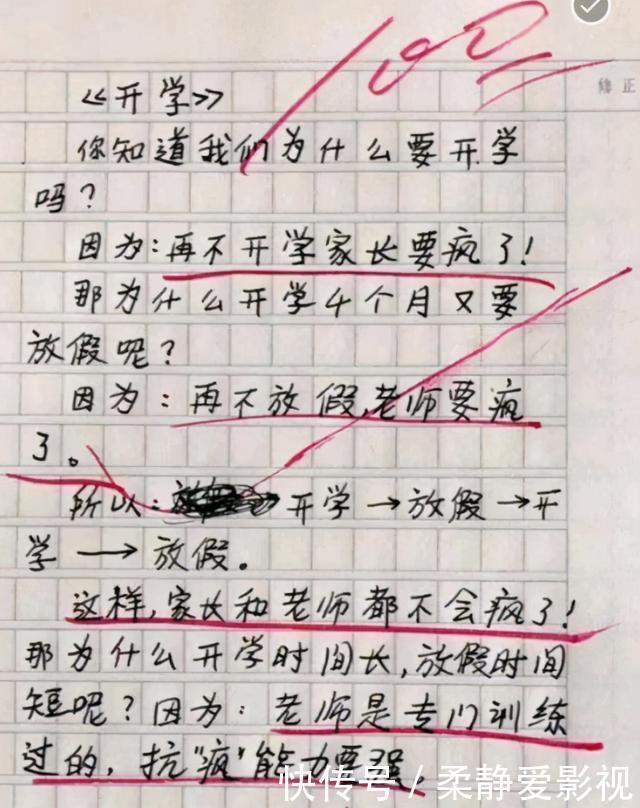 100
修正
《开学》
你知道我们为什么要开学
吗?
因为:再不开学家长要疯了!
那为什么开学4个月又要
放假呢?
因为:再不放假,老师要疯
了。
所以:开学→放假→开
学→放假。
这样,家长和老师都不会疯了!
那为什么开学时间长,放假时间
短呢?因为:老师是专门训练
过的,抗"疯"能力要强。
快传号/柔静爱影视